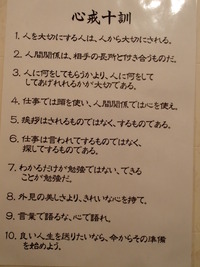 心戒十訓
1. 人を大切にする人は、人から大切にされる。
2. 人間関係は、相手の長所と付き合うものだ。
3. 人に何をしてもらうかより、人に何をして
してあげれれるかが大切である。
4. 仕事では頭を使い、人間関係では心を使え。
5. 挨拶はされるものではなく、するものである。
6. 仕事は言われてするものではなく、
探してするものである。
7. わかるだけが勉強ではない、できる
ことが勉強だ。
8. 外見の美しさより、きれいな心を持て。
9. 言葉で語るな、心で語れ。
10. 良い人生を送りたいなら、今からその準備
を始めよう。